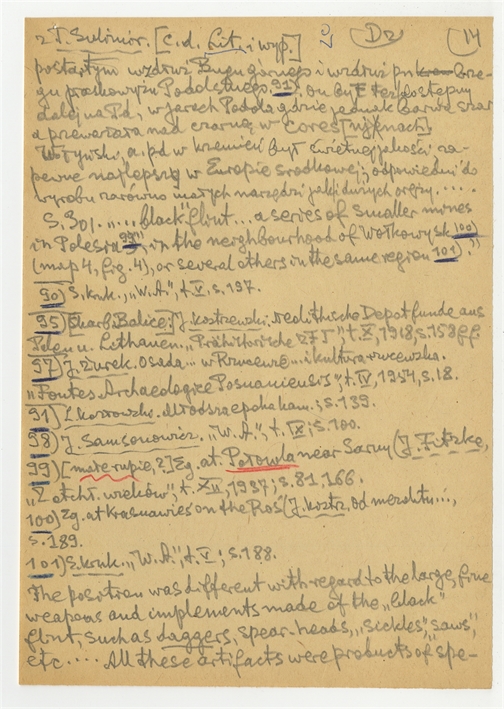 z T. Sulimir. [c. d. Lit. i wyp.] D2 14
postartym wzdłuż Bugu górnego i wzdłuż brze-
gu Podolskiego 91), on był też dostępny
dalej na Pd, w jarach Podola gdzie jednak barwa szar
a przeważała nad czarną w cores [
Wołyński, a. pd w. krzemień był świetnej jakości za-
pewne najlepszy w Europie środkowej; odpowiedni do
wyrobu zarówno małych narzędzi jak i dużych oręży. ....
S. 301. „... "black" flint ... a series of smaller mines
in Polesia 99), in the neighbourhood of Wołkowysk 100)
(map 4, fig. 4), or several others in the same region 101)."
90) S. Kruk. „W.A.", t. V, s. 197.
95) [Skarb Balice:] J. Kostrzewski. Neolithische Depotfunde aus
Polen u. Lithauen. „Prähistorische Z", t. X, 1918, s. 158 ff.
97) J. Żurek. Osada... w Rzucewie... i kultura rzucewska.
„Fontes Archaeologice Posnaniensis", t. IV, 1954, s. 18.
91) L. Kozłowski. Młodsza epoka kam.; s. 139.
98) J. Samsonowicz. „W.A.", t. IX; s. 100.
99) [mate rupie, ?] Eg. at Potowla near Sarny (J. Fitzke,
„Z otchł. wieków", t. XII, 1937; s. 81, 166.
100) Eg. at Krasnawies on the Roś (J. Kostrz, od mezolitu...,
s. 189.
101) S. Kruk. „W.A.", t. V; s. 188.
The position was different with regard to the large, fine
weapons and implements made of the „black"
flint, such as daggers, spear-heads, „sickles", „saws",
etc .... All these artifacts were products of spe-